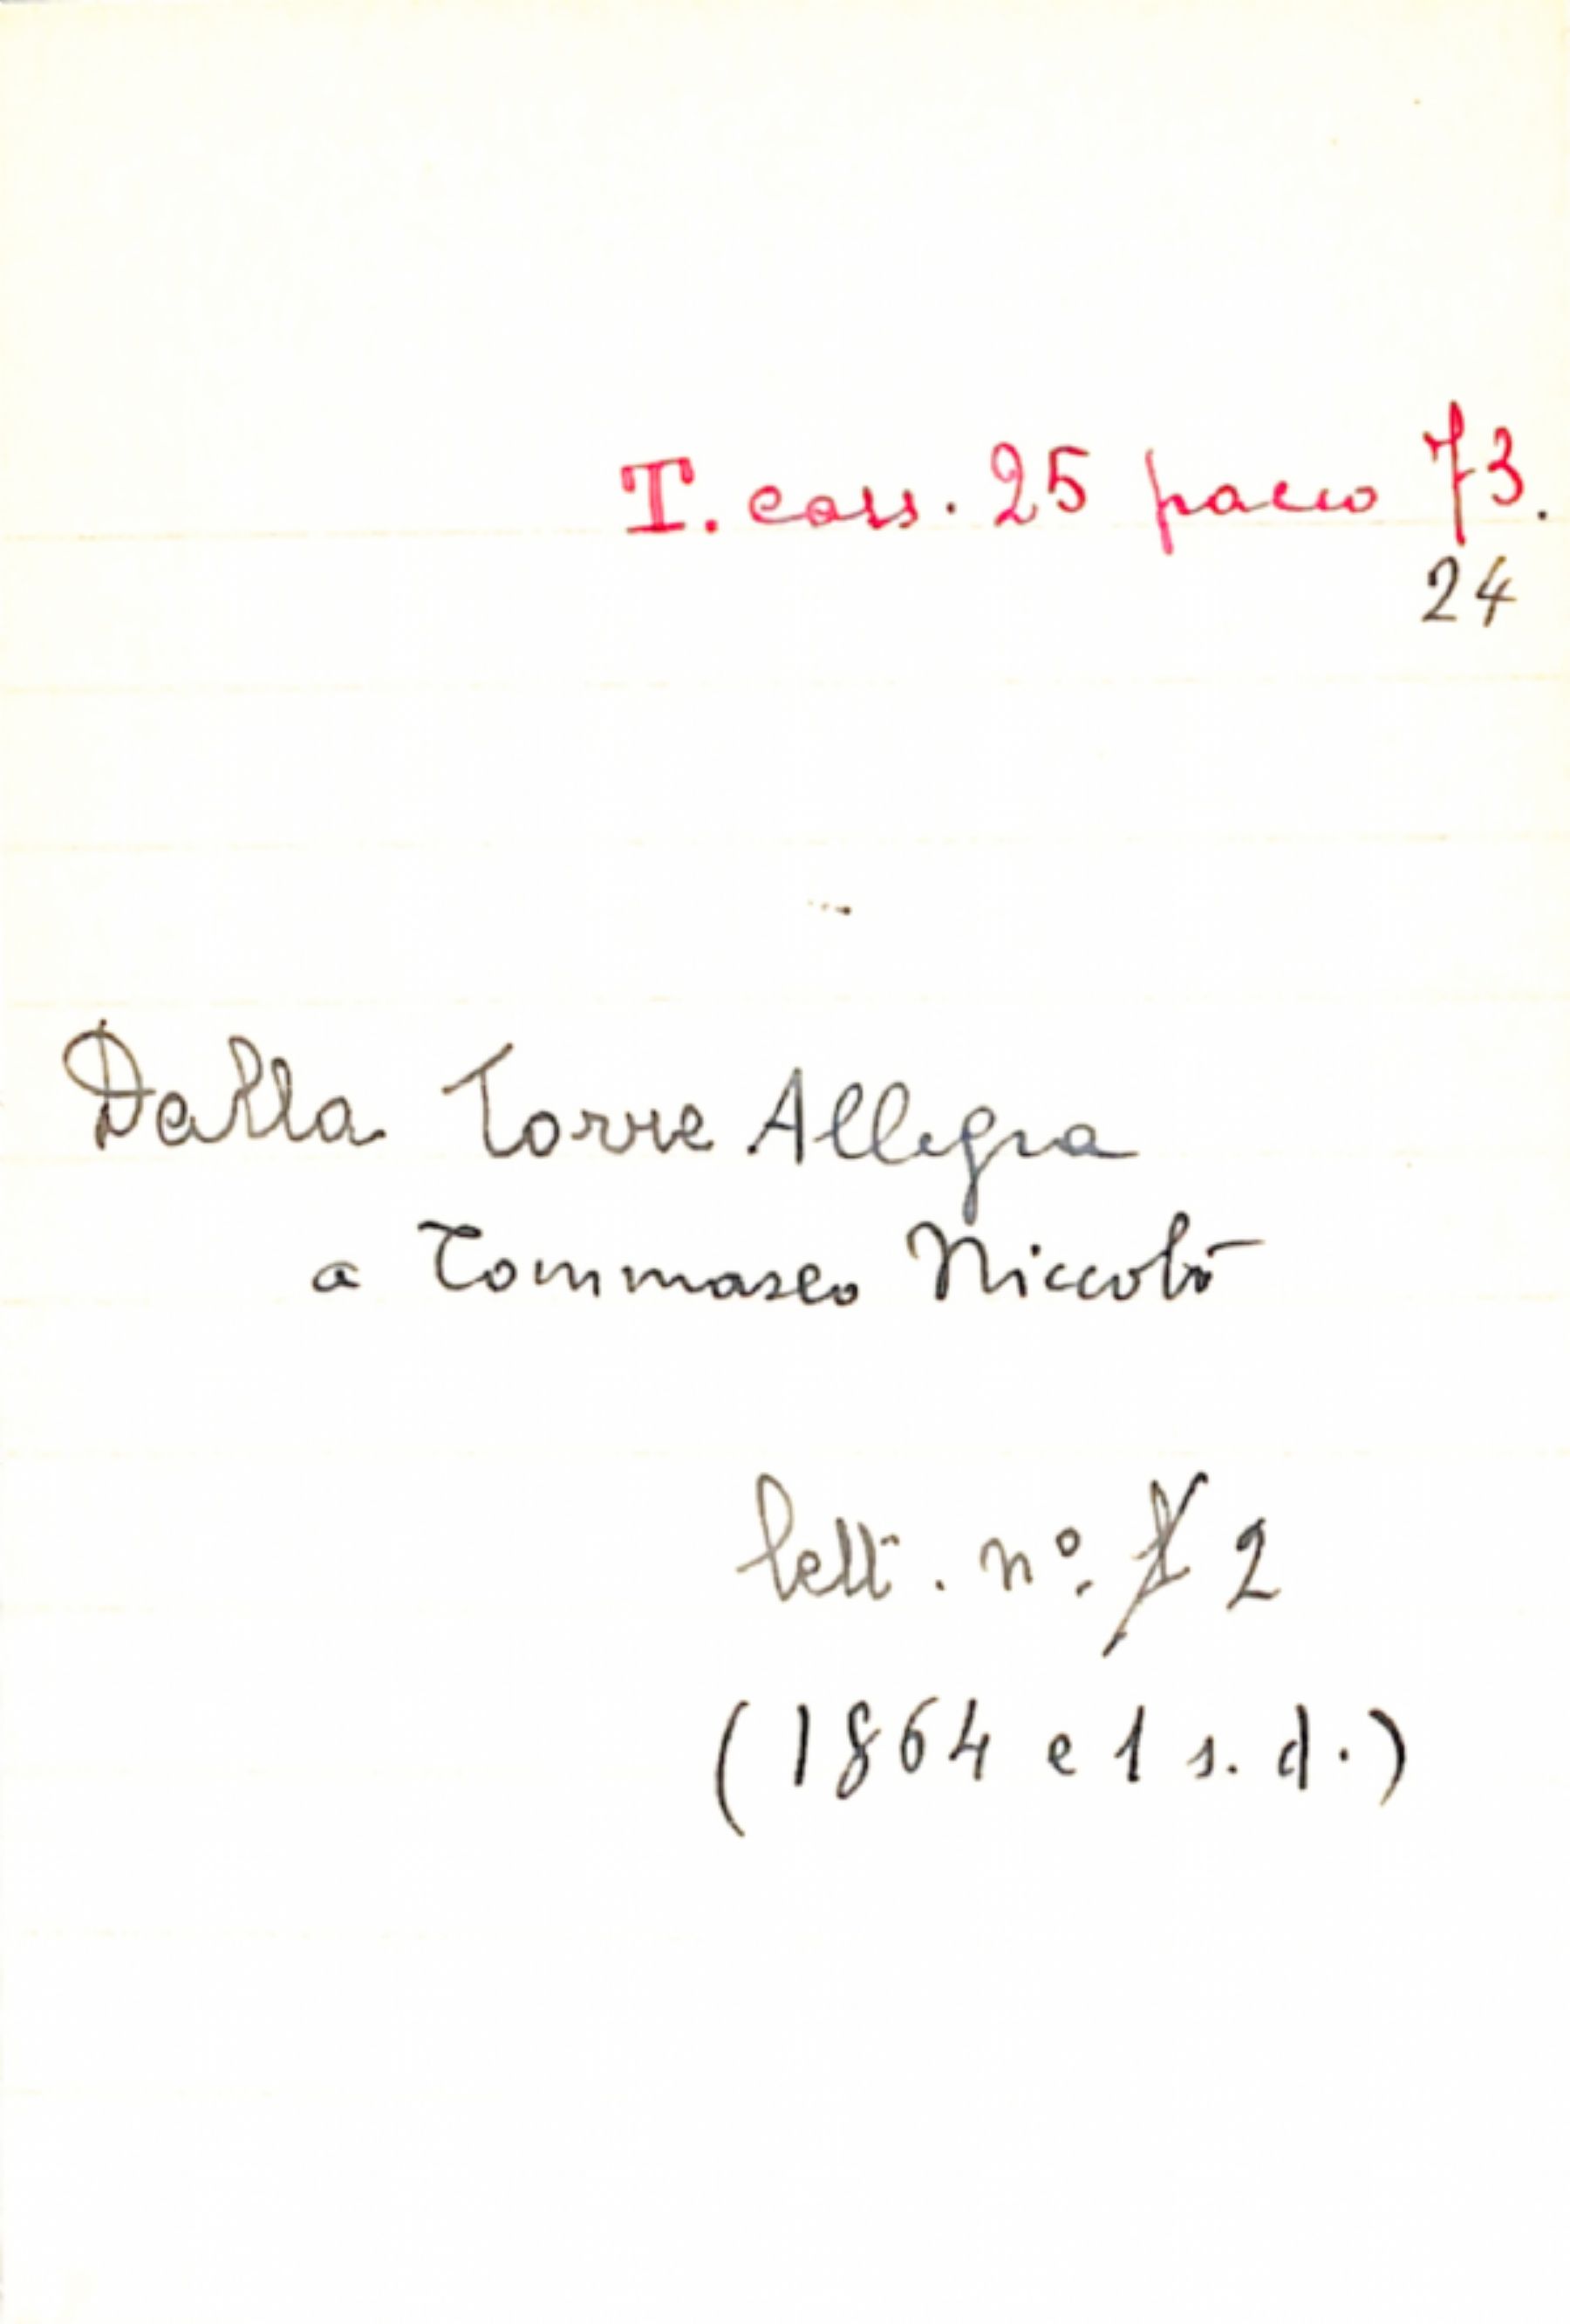 T. cass. 25 pacco 73.
24
Dalla Torre Allegra
a Tommaseo Niccolò
lett. nº. 2
(1864 e 1 s. d.)